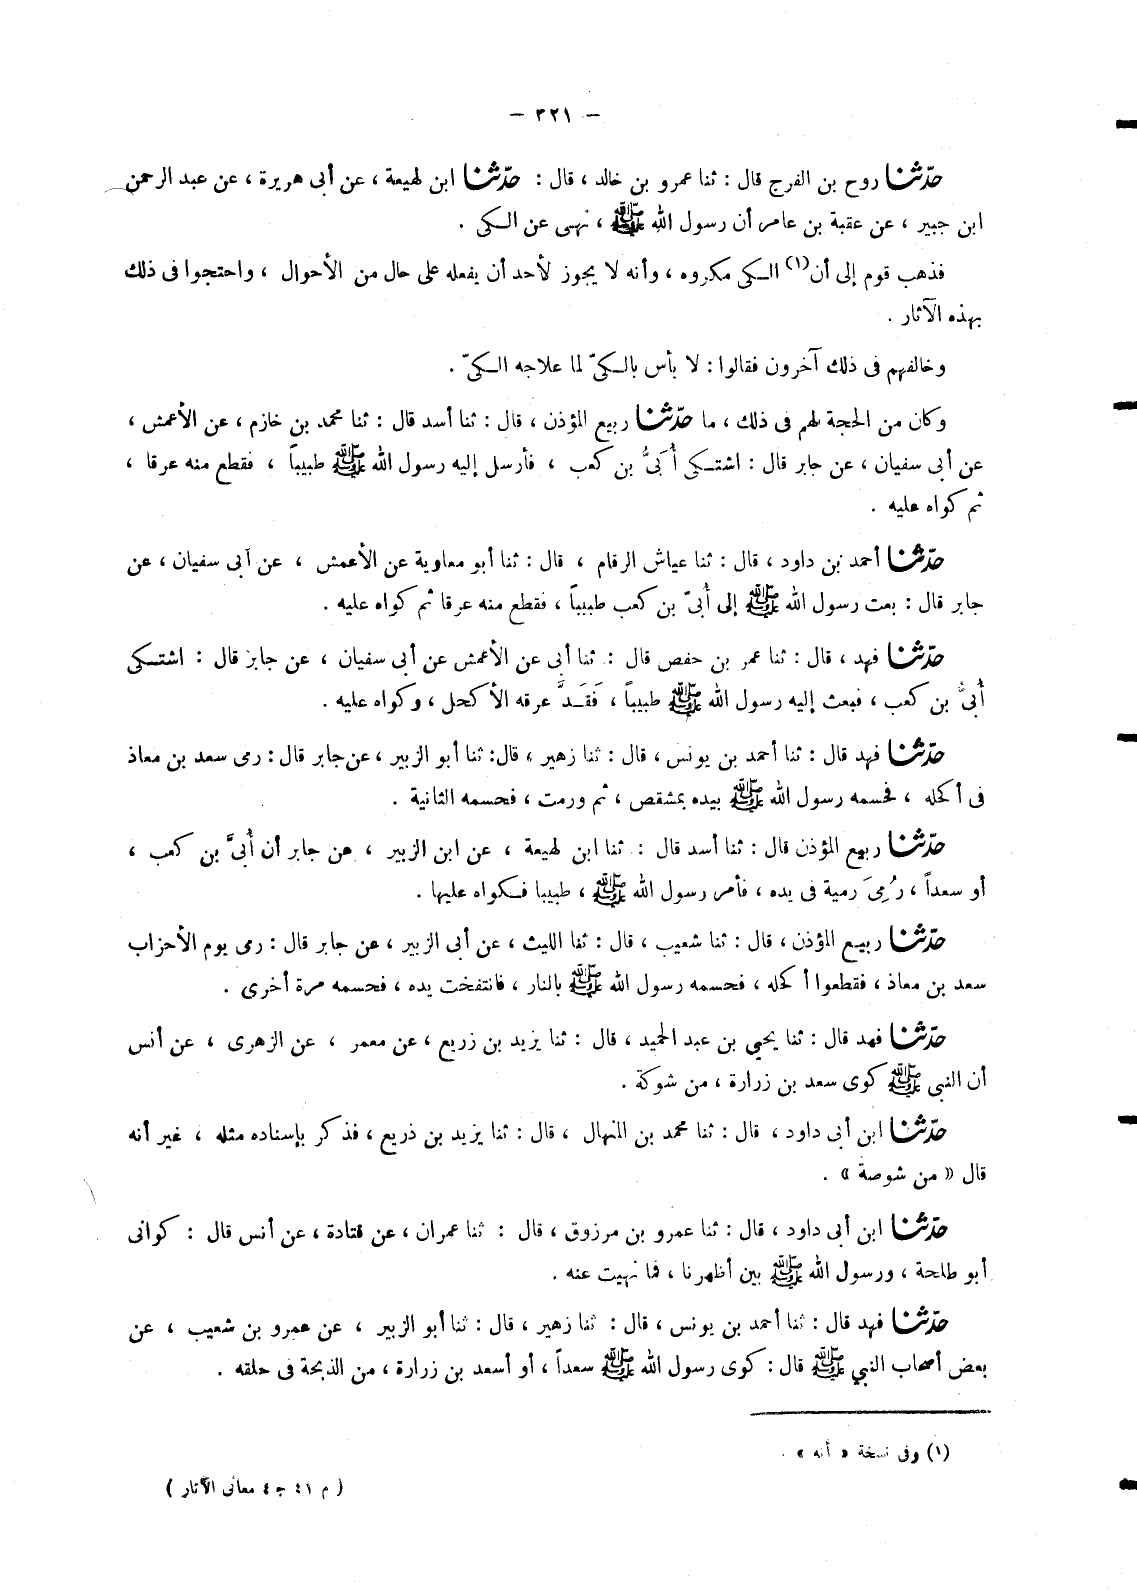 — ٣٢١ —
حدّثنا روح بن الفرج قال : ثنا عمرو بن خالد ، قال : حدّثنا ابن لهيعة ، عن أبى هريرة ، عن عبد الرحمن
ابن جبير ، عن عقبة بن عامر أن رسول الله ﷺ ، نهى عن الكى .
فذهب قوم إلى أن(١) الكى مكروه ، وأنه لا يجوز لأحد أن يفعله على حال من الأحوال ، واحتجوا فى ذلك
بهذه الآثار .
وخالفهم فى ذلك آخرون فقالوا : لا بأس بالكىّ لما علاجه الكىّ .
وكان من الحجة لهم فى ذلك ، ما حدّثنا ربيع المؤذن ، قال : ثنا أسد قال : ثنا محمد بن خازم ، عن الأعمش ،
عن أبى سفيان ، عن جابر قال : اشتكى أُبَىُّ بن كعب ، فأرسل إليه رسول الله ﷺ طبيباً ، فقطع منه عرقا ،
ثم كواه عليه .
حدّثنا أحمد بن داود ، قال : ثنا عياش الرقام ، قال : ثنا أبو معاوية عن الأعمش ، عن أبى سفيان ، عن
جابر قال : بعت رسول الله ﷺ إلى أُبىّ بن كعب طبيباً ، فقطع منه عرقا ثم كواه عليه .
حدّثنا فهد ، قال : ثنا عمر بن حفص قال : ثنا أبى عن الأعمش عن أبى سفيان ، عن جابر قال : اشتكى
أُبىُّ بن كعب ، فبعث إليه رسول الله ﷺ طبيباً ، فَقَدَّ عرقه الأكحل ، وكواه عليه .
حدّثنا فهد قال : ثنا أحمد بن يونس ، قال : ثنا زهير ، قال : ثنا أبو الزبير ، عن جابر قال : رمى سعد بن معاذ
فى أكحله ، فحسمه رسول الله ﷺ بيده بمشقص ، ثم ورمت ، فحسمه الثانية .
حدّثنا ربيع المؤذن قال : ثنا أسد قال : ثنا ابن لهيعة ، عن ابن الزبير ، عن جابر أن أُبىَّ بن كعب ،
أو سعداً ، رُمِىَ رمية فى يده ، فأمر رسول الله ﷺ ، طبيبا فكواه عليها .
حدّثنا ربيع المؤذن ، قال : ثنا شعيب ، قال : ثنا الليث ، عن أبى الزبير ، عن جابر قال : رمى يوم الأحزاب
سعد بن معاذ ، فقطعوا أكحله ، فحسمه رسول الله ﷺ بالنار ، فانتفخت يده ، فحسمه مرة أخرى .
حدّثنا فهد قال : ثنا يحيي بن عبد الحميد ، قال : ثنا يزيد بن زريع ، عن معمر ، عن الزهرى ، عن أنس
أن النبى ﷺ كوى سعد بن زرارة ، من شوكة .
حدّثنا ابن أبى داود ، قال : ثنا محمد بن المنهال ، قال : ثنا يزيد بن ذريع ، فذكر بإسناده مثله ، غير أنه
قال « من شوصة » .
حدّثنا ابن أبى داود ، قال : ثنا عمرو بن مرزوق ، قال : ثنا عمران ، عن قتادة ، عن أنس قال : كوانى
أبو طلحة ، ورسول الله ﷺ بين أظهرنا ، فما نهيت عنه .
حدّثنا فهد قال : ثنا أحمد بن يونس ، قال : ثنا زهير ، قال : ثنا أبو الزبير ، عن عمرو بن شعيب ، عن
بعض أصحاب النبي ﷺ قال : كوى رسول الله ﷺ سعداً ، أو أسعد بن زرارة ، من الذبحة فى حلقه .
(١) وفى نسخة « أنه » .
( م ٤١ ج ٤ معانى الآثار )